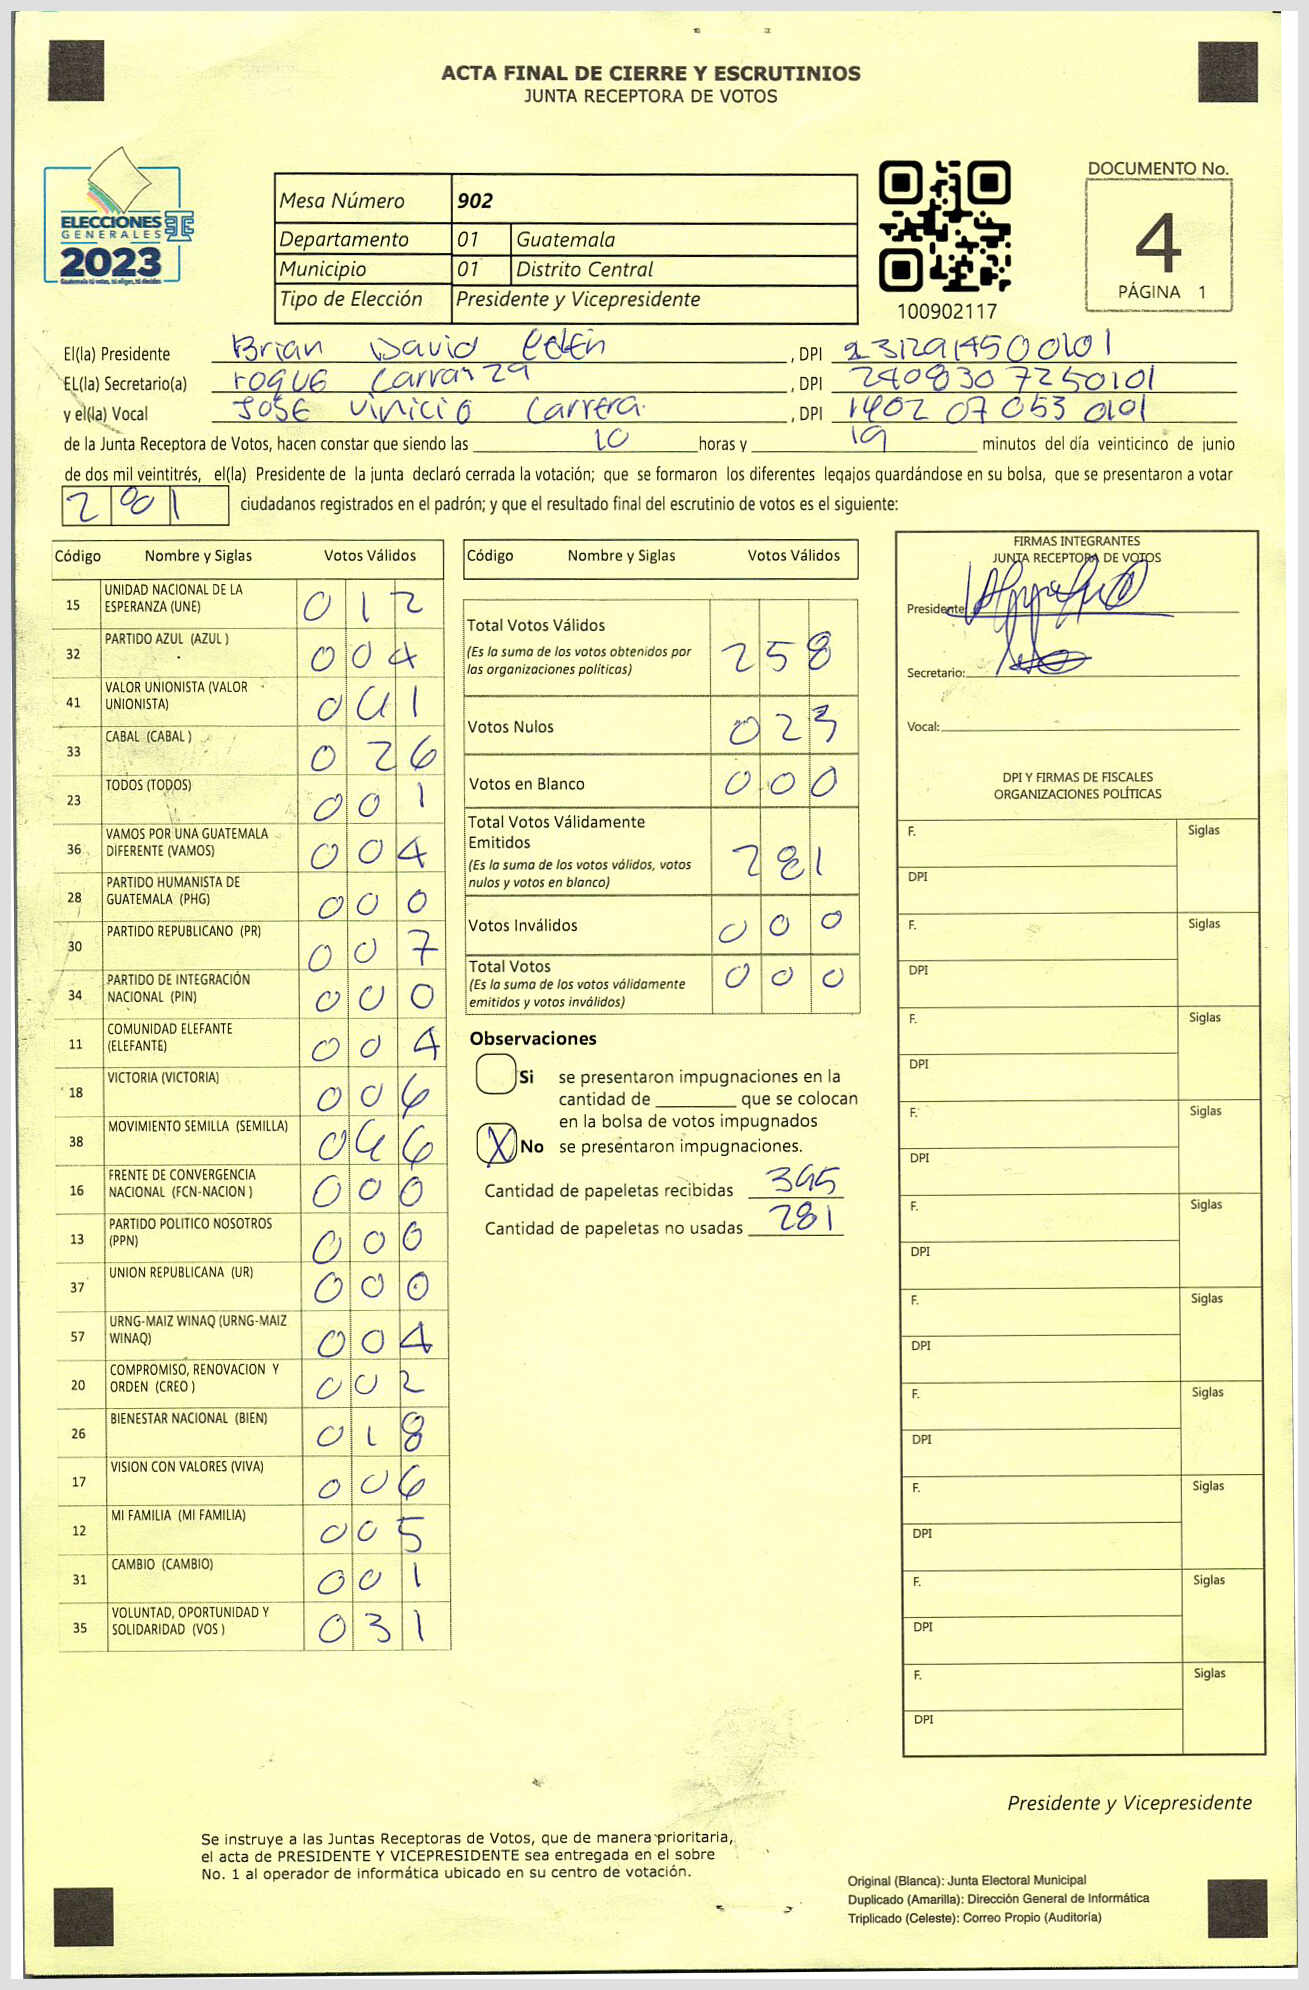 ACTA FINAL DE CIERRE Y ESCRUTINIOS
JUNTA RECEPTORA DE VOTOS
ELECCIONES
GENERALES
2023
Guatemala tú votas, tú eliges, tú decides
Mesa Número 902
Departamento 01 Guatemala
Municipio 01 Distrito Central
Tipo de Elección Presidente y Vicepresidente
100902117
DOCUMENTO No.
4
PÁGINA 1
El(la) Presidente Brian David , DPI
EL(la) Secretario(a) roque Carranza , DPI 240830 7250101
y el(la) Vocal JOSE Vinicio Carrera. , DPI 1402 07053 0101
de la Junta Receptora de Votos, hacen constar que siendo las 10 horas y 19 minutos del día veinticinco de junio
de dos mil veintitrés, el(la) Presidente de la junta declaró cerrada la votación; que se formaron los diferentes legajos guardándose en su bolsa, que se presentaron a votar
281 ciudadanos registrados en el padrón; y que el resultado final del escrutinio de votos es el siguiente:
Código Nombre y Siglas Votos Válidos
15 UNIDAD NACIONAL DE LA ESPERANZA (UNE) 012
32 PARTIDO AZUL (AZUL ) 004
41 VALOR UNIONISTA (VALOR UNIONISTA)
33 CABAL (CABAL ) 026
23 TODOS (TODOS) 001
36 VAMOS POR UNA GUATEMALA DIFERENTE (VAMOS) 004
28 PARTIDO HUMANISTA DE GUATEMALA (PHG) 000
30 PARTIDO REPUBLICANO (PR) 007
34 PARTIDO DE INTEGRACIÓN NACIONAL (PIN) 000
11 COMUNIDAD ELEFANTE (ELEFANTE) 004
18 VICTORIA (VICTORIA) 006
38 MOVIMIENTO SEMILLA (SEMILLA)
16 FRENTE DE CONVERGENCIA NACIONAL (FCN-NACION ) 000
13 PARTIDO POLITICO NOSOTROS (PPN) 000
37 UNION REPUBLICANA (UR) 000
57 URNG-MAIZ WINAQ (URNG-MAIZ WINAQ) 004
20 COMPROMISO, RENOVACION Y ORDEN (CREO ) 002
26 BIENESTAR NACIONAL (BIEN) 018
17 VISION CON VALORES (VIVA) 006
12 MI FAMILIA (MI FAMILIA) 005
31 CAMBIO (CAMBIO) 001
35 VOLUNTAD, OPORTUNIDAD Y SOLIDARIDAD (VOS ) 031
Código Nombre y Siglas Votos Válidos
Total Votos Válidos 258
(Es la suma de los votos obtenidos por
las organizaciones políticas)
Votos Nulos 023
Votos en Blanco 000
Total Votos Válidamente
Emitidos 281
(Es la suma de los votos válidos, votos
nulos y votos en blanco)
Votos Inválidos 000
Total Votos 000
(Es la suma de los votos válidamente
emitidos y votos inválidos)
Observaciones
Si se presentaron impugnaciones en la
cantidad de ________ que se colocan
en la bolsa de votos impugnados
X No se presentaron impugnaciones.
Cantidad de papeletas recibidas 395
Cantidad de papeletas no usadas 281
FIRMAS INTEGRANTES
JUNTA RECEPTORA DE VOTOS
Presidente
Secretario:
Vocal:
DPI Y FIRMAS DE FISCALES
ORGANIZACIONES POLÍTICAS
F. Siglas
DPI
F. Siglas
DPI
F. Siglas
DPI
F. Siglas
DPI
F. Siglas
DPI
F. Siglas
DPI
F. Siglas
DPI
F. Siglas
DPI
F. Siglas
DPI
F. Siglas
DPI
Presidente y Vicepresidente
Se instruye a las Juntas Receptoras de Votos, que de manera prioritaria,
el acta de PRESIDENTE Y VICEPRESIDENTE sea entregada en el sobre
No. 1 al operador de informática ubicado en su centro de votación.
Original (Blanca): Junta Electoral Municipal
Duplicado (Amarilla): Dirección General de Informática
Triplicado (Celeste): Correo Propio (Auditoría)